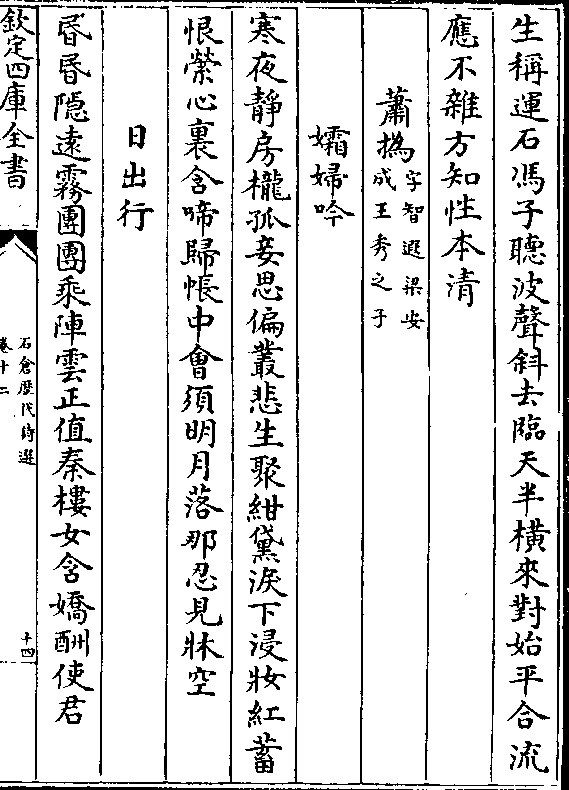 生稱運石馮子聽波聲斜去臨天半橫來對始平合流
應不雜方知性本清
蕭撝字智遐梁安
成王秀之子
孀婦吟
寒夜靜房櫳孤妾思偏叢悲生聚紺黛淚下浸妝紅蓄
恨縈心裏含啼歸帳中會須明月落那忍見牀空
日出行
昏昏隱遠霧團團乘陣雲正值秦樓女含嬌酬使君
欽定四庫全書
石倉歷代詩選
卷十二
十四